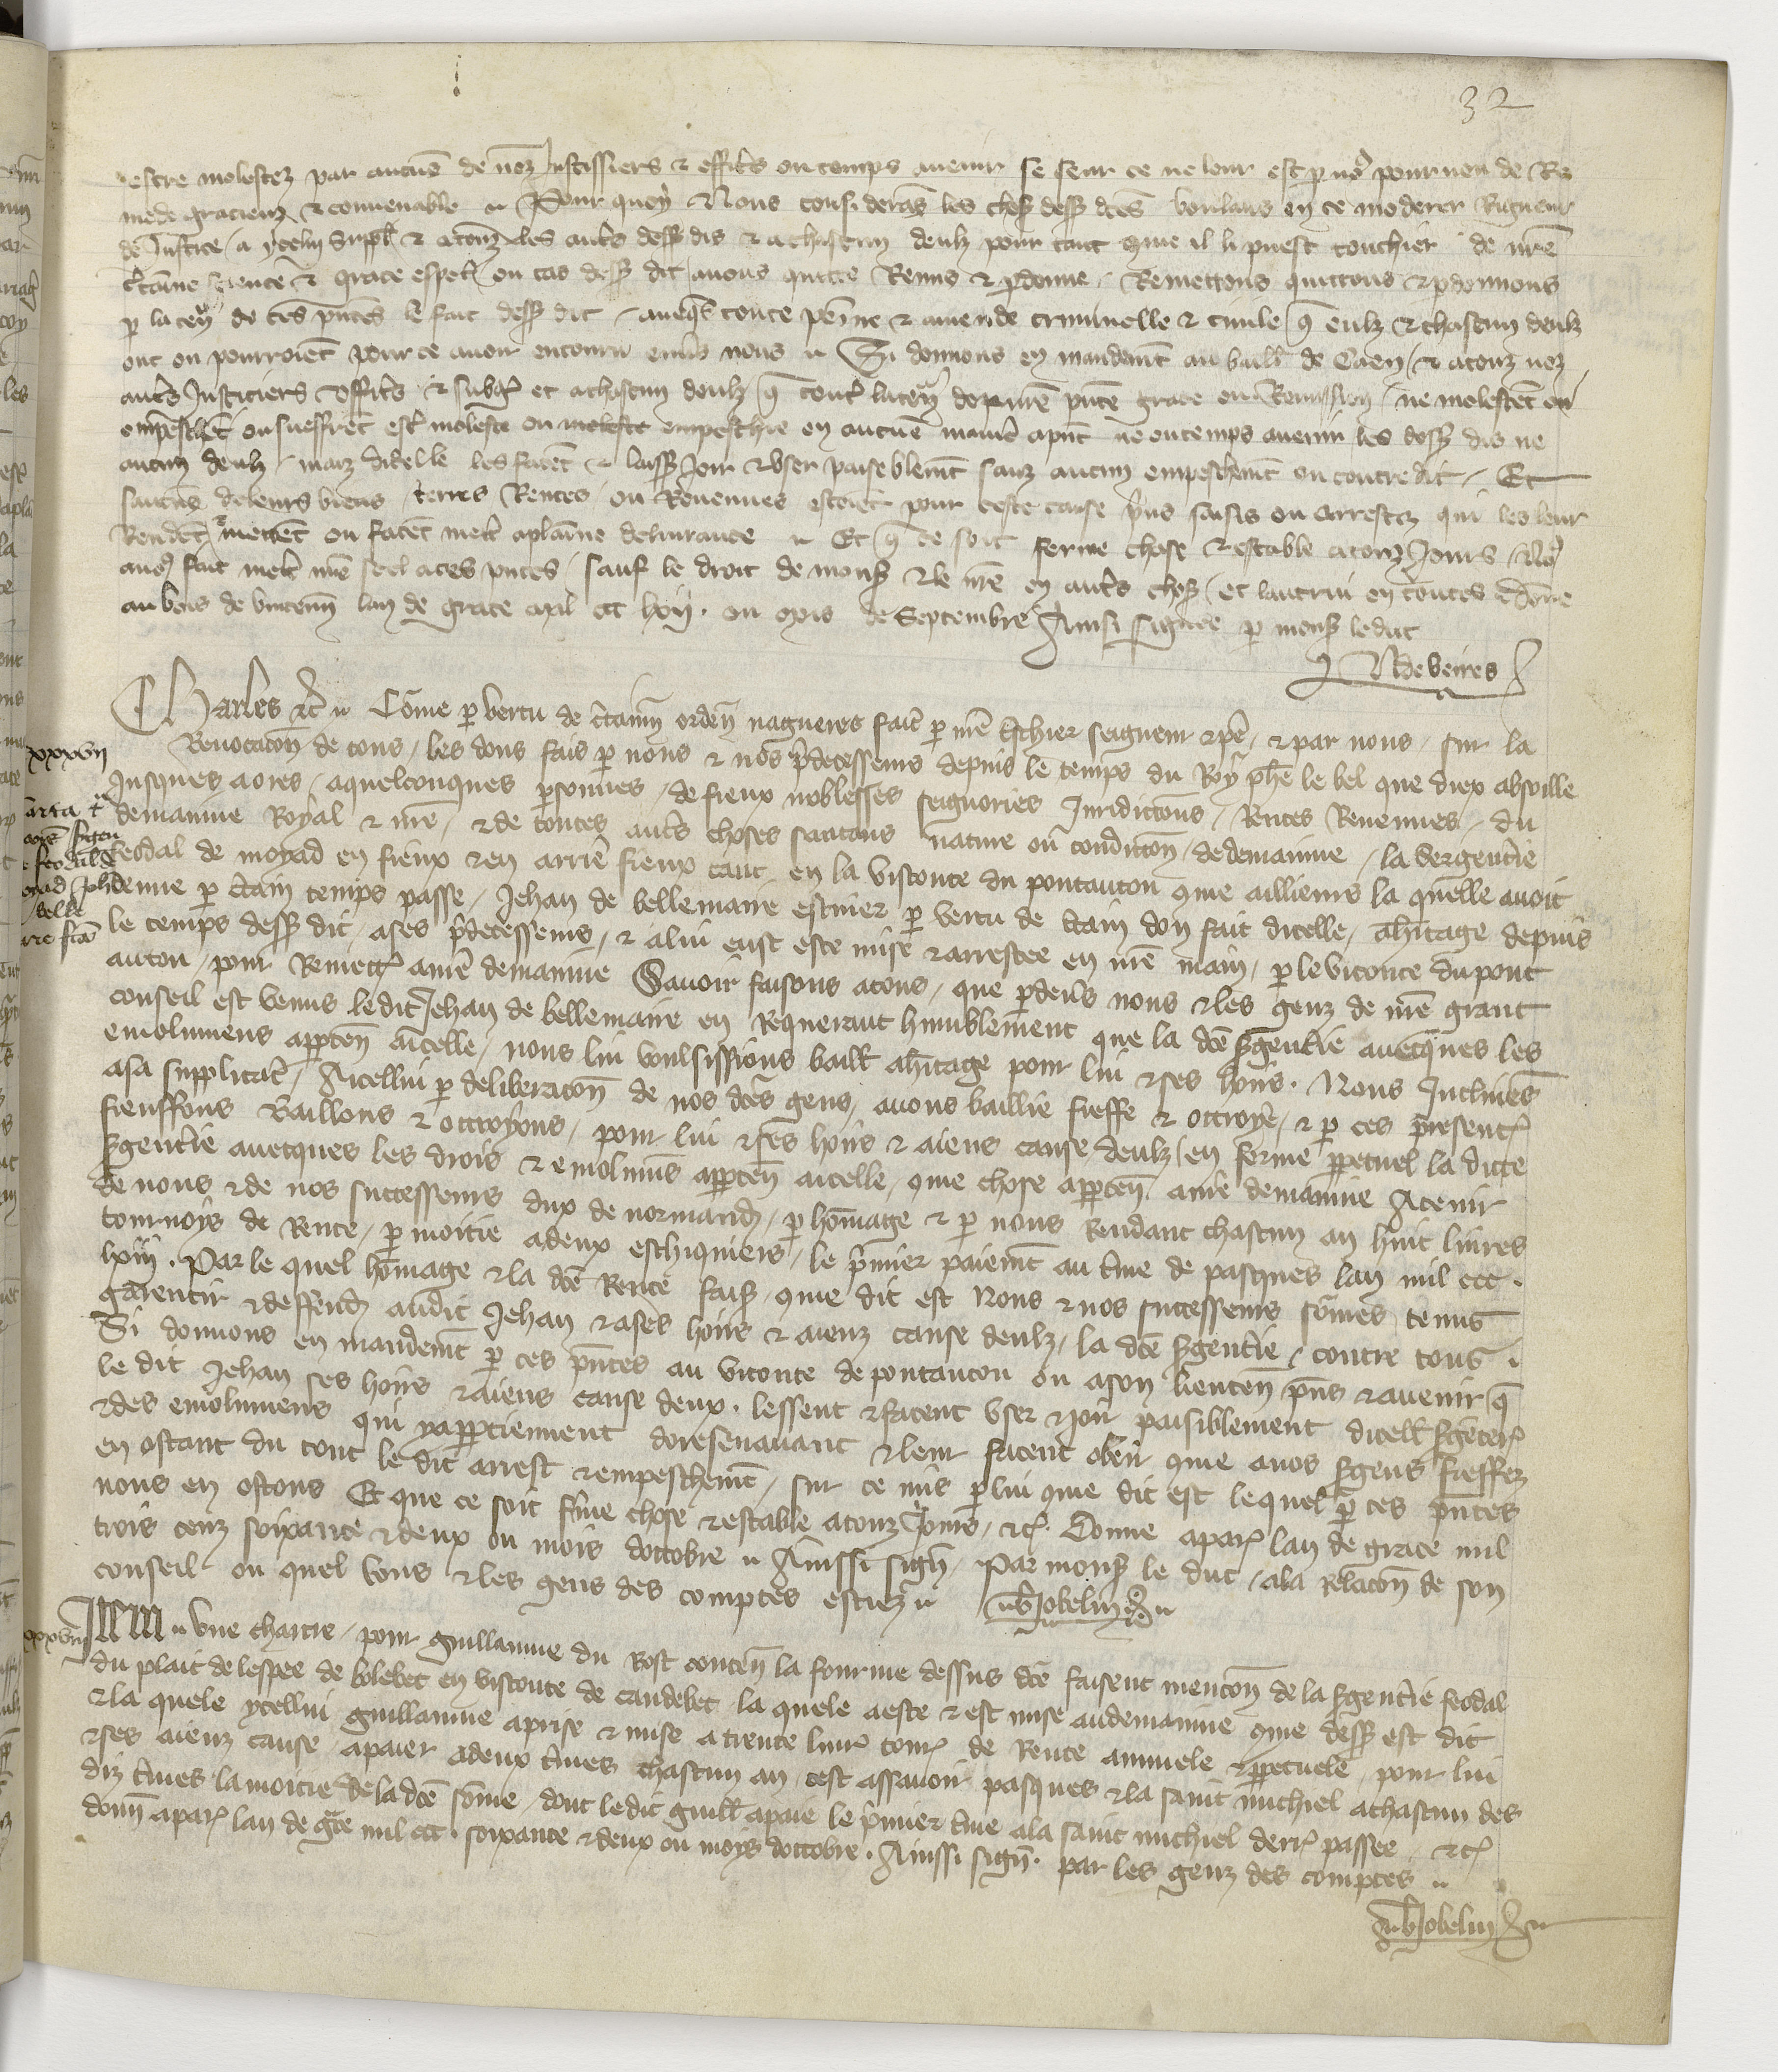 32
estre molestez par aucuns de noz Justissiers & offic̃rs ou temps avenir se seur ce ne leur est p nõ pourveu de Re
mede gracieux & convenable Pour quoy Nous considerãs les chos̃ dess̃ dc̃es voulans en ce moderer Rigueur
de Justice a ycelui suppl̃ & a touz les autr̃s dess̃ dis & a chascun deulz pour tant cõme il li puest touchier de nr̃e
c̃taine science & grace esp̃el ou cas dess̃ dit avons quitte Remis & p̃donne Remettons quittons & p̃donnons
p la ten̄ de ces p̃ntes le fait dess̃ dit avecq̃s toute peine & amende criminelle & civile q̃ eulz & chascun deulz
ont ou pourroiẽt pour ce avoir encouru envs̃ nous Si donnons en mandem̃t au bailli de Caen & a touz noz
autr̃s Justiciers & offic̃rs & subg̃ et a chascun deulz q̃ contr̃ la ten̄ de nr̃e p̃nte grace ou Remission ne molestẽt ou
empeschẽt ou sueffrẽt estr̃ moleste ou moleste empeschie en aucune maniẽ a p̃nt ne ou temps avenir les dess̃ dis ne
aucun deulz maiz dicelle les facẽt & laiss̃ Joir & user paisiblem̃t sanz aucun empeschem̃t ou contredit Et
saucuns de leurs biens terres Rentes ou Revenues estoiẽt pour ceste cause p̃ns saisis ou arrestez qui les leur
Rendẽt & mettẽt ou facẽt mettr̃ a plaine delivrance Et q̃ ce soit ferme chose & estable a touz Jours No͂
avõs fait mettr̃ nr̃e seel a ces p̃ntes sauf le droit de mons̃ & le nr̃e en autr̃s chos̃ et lautrui en toutes Donne
au bois de vincenn̄ lan de grace mil ccc lxij. ou mois de Septembre Ainsi signee p mons̃ le duc
N de veires
Charles &c̃ Cõme p vertu de c̃tainn̄ orden̄ nagueres fait̃ p nr̃e t̃schier seigneur & pẽ, & par nous, sur la
xxxvii Revocac̃on de tous les dons fais p nous & nos p̃decesseurs depuis le temps du Roy ph̃e le bel que diex absoille
Jusques a ores a quelconques p̃sonnes de fieux noblesses seignories Juridicc̃ons, Rentes Revenues, du
demainne Royal & nr̃e, & de toutes autr̃s choses sentans nature ou condicc̃on de demainne la sergent̃ie
feodal de moyad en fieux & en arriẽ fieux tant en la visconte du pontautou cõme aillieurs la quelle avoit
tenue p c̃tain temps passe Jehan de bellemaire escuier p vertu de c̃tain don fait dicelle, a h̃itage depuis
le temps dess̃ dit a ses p̃decesseurs, & a lui eust este mise & arrestee en nr̃e main, p le viconte du pont
autou pour Remettr̃ a nr̃e demainne Savoir faisons a tous, que p̃devs̃ nous & les genz de nr̃e grant
conseil est venus le dit Jehan de bellemaire en Requerant humblement que la dc̃e s̃gent̃ie avecques les
emolumens appten̄ a icelle, nous lui voulsissions baill̃ a h̃itage pour lui & ses hoirs. Nous Inclinẽs
a sa supplicat̃, A icellui p deliberac̃on de nos dc̃es gens, avons baillie fieffe & ottroye, & p ces present̃
fieuffons Baillons & ottroyons, pour lui & ses hoirs & aiens cause deulz en forme p̃petuel la ditte
s̃gent̃ie avecques les drois & emolum̃s appten̄ a icelle, cõme chose appten̄ a nr̃e demainne A tenir
de nous & de nos successeurs dux de normandie, p hõmage & p nous Rendant chascun an huit livres
tournoys de Rente, p moitie a deux eschiquiers, le p̃mier paiem̃t au t̃me de pasques lan mil ccc.
lxiii. Par le quel hõmage & la dc̃e Rente fais̃ cõme dit est Nous & nos successeurs sõmes tenus
garentir & deffend̃ audit Jehan & a ses hoirs & aienz cause deulz, la dc̃e s̃gent̃ie, contre tous.
Si donnons en mandem̃t p ces p̃ntes au viconte de pontautou ou a son lieuten̄ p̃ns & avenir q̃
le dit Jehan ses hoirs & aiens cause deux. lessent & facent user & joir paisiblement dicell̃ s̃gent̃ie
& des emolumens qui y apptiennent doresenavant & leur facent obeir cõme a nos s̃gens fieffez
en ostant du tout le dit arrest & empeschem̃t, sur ce mis p lui cõme dit est lequel p ces p̃ntes
nous en ostons Et que ce soit f̃me chose & estable a touz Jours, &c̃. Donne a paris̃ lan de grace mil
trois cenz soixante & deux ou mois doctobre Ainssi sign̄ Par mons̃ le duc, a la Relac̃on de son
conseil ou quel vous & les gens des comptes estiez Jobelin
xxxviii Item une chartre pour guillaume du Bost conten̄ la fourme dessus dc̃e faisent menc̃on de la s̃gent̃ie feodal
du plait de lespee de bolebec en visconte de caudebec la quele a este & est mise au demainne cõme dess̃ est dit
& la quele ycellui guillaume a prise & mise a trente livr̃ tourñ de Rente annuele & p̃petuele, pour lui
& ses aienz cause a paier a deux t̃mes chascun an cest assavoir pasques & la saint michiel a chascun des
diz t̃mes la moitie de la dc̃e sõme, dont le dit guill̃ a paie le p̃mier t̃me a la saint michiel derr̃ passee &c̃
donn̄ a paris̃ lan de gr̃ce mil ccc. soixante & deux ou moys doctobre. Ainssi sign̄. par les genz des comptes
Jobelin